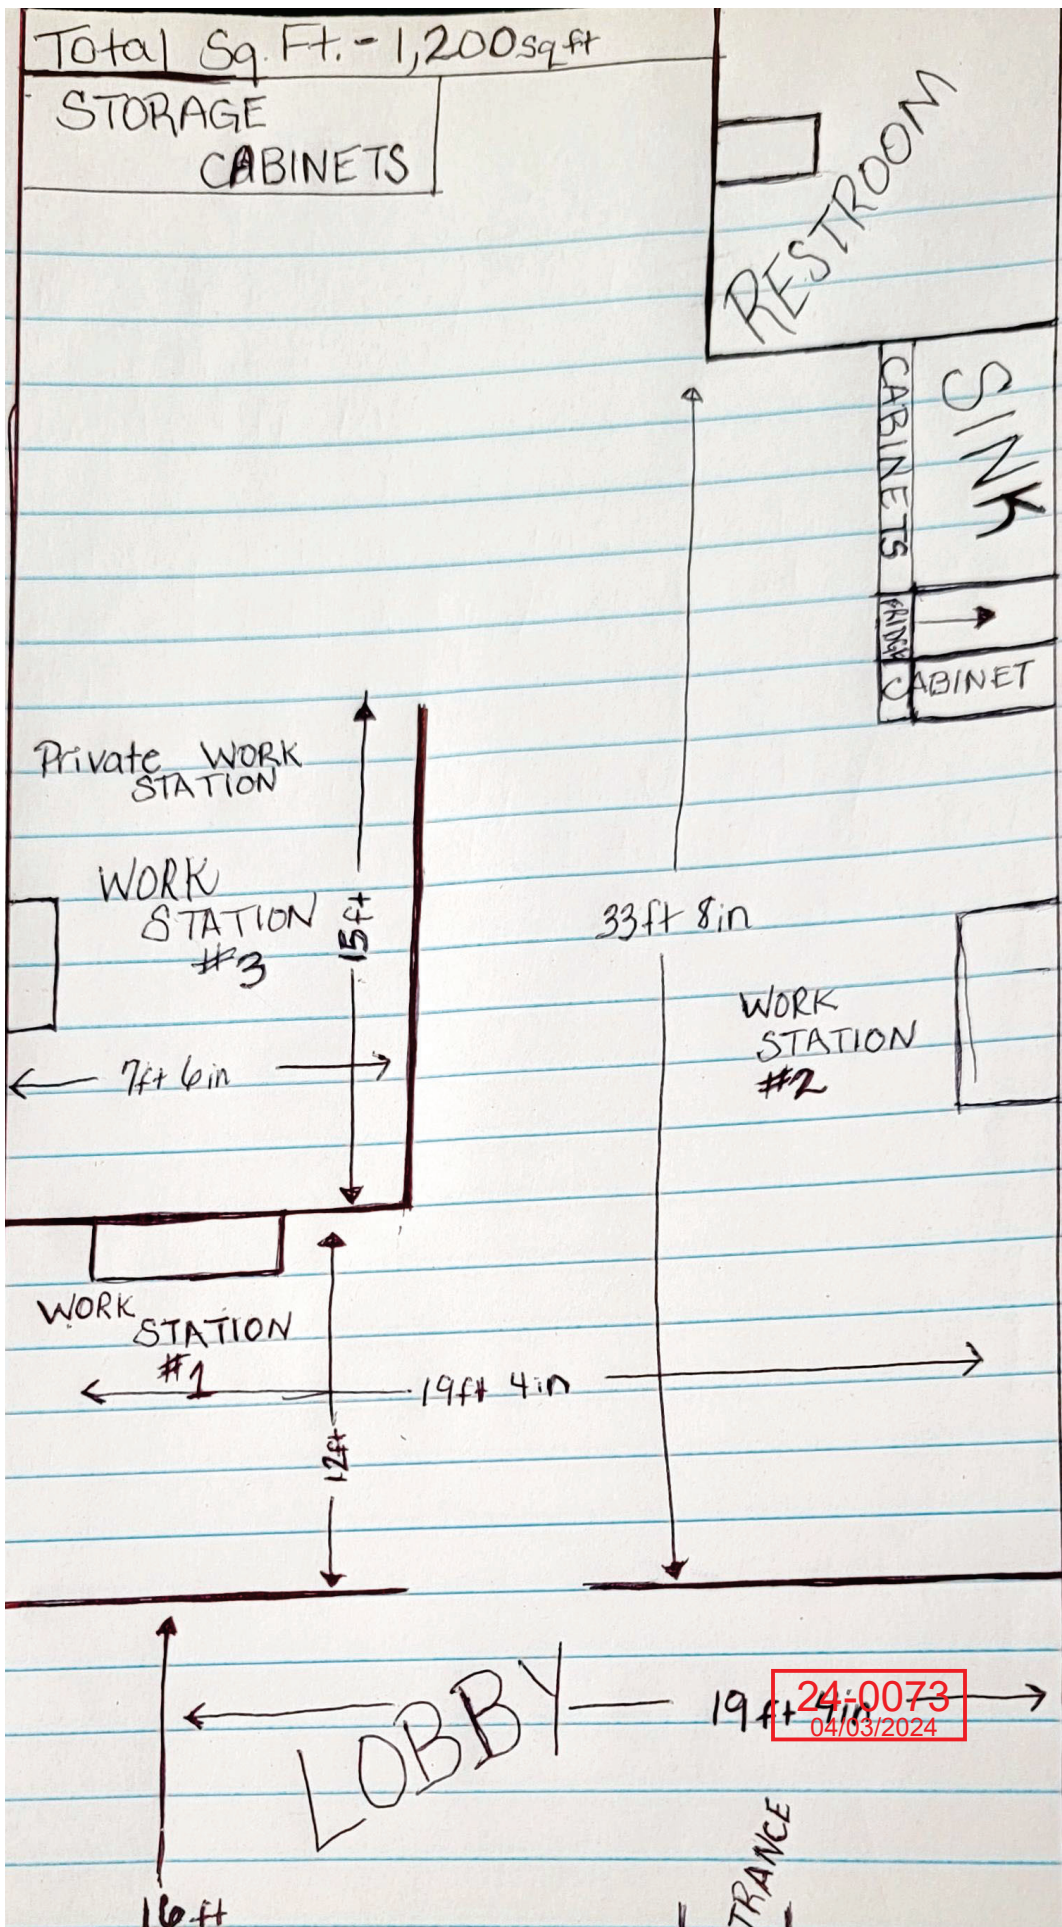 Total Sq. Ft. - 1,200 sq ft
STORAGE
CABINETS
RESTROOM
SINK
CABINETS
FRIDGE
CABINET
Private WORK
STATION
WORK
STATION
#3
15ft
33ft 8in
7ft 6in
WORK
STATION
#2
WORK
STATION
#1
19ft 4in
12ft
LOBBY
19ft 4in
24-0073
04/03/2024
TRANCE
16 ft